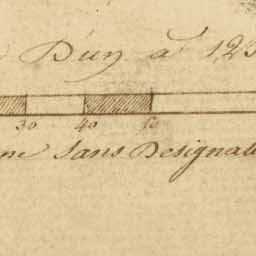 D'un à 12
30 40 50
ne Sans Designati